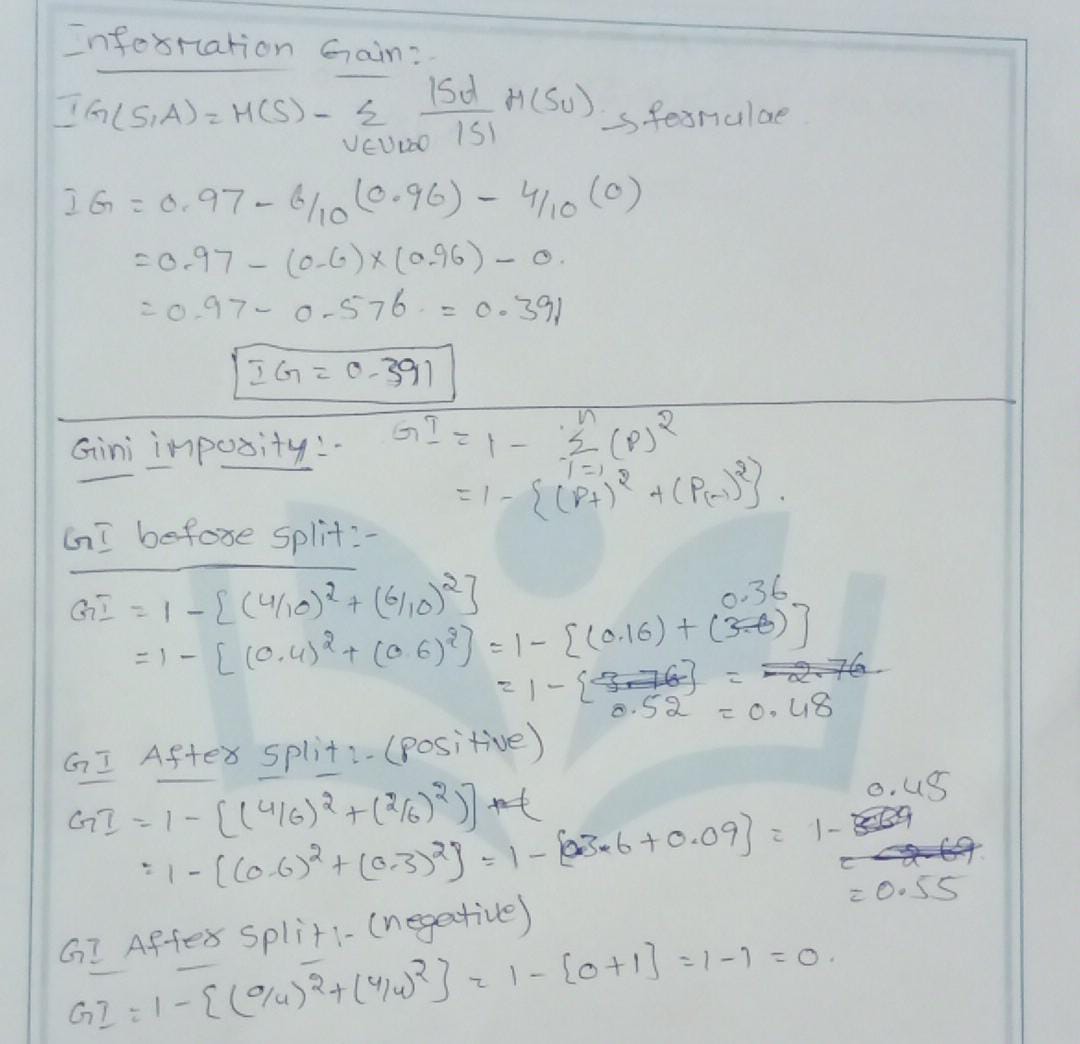 Information Gain:-
IG(S,A) = H(S) - Σ |Sv|/|S| H(Sv) → formulae
IG = 0.97 - 6/10 (0.96) - 4/10 (0)
= 0.97 - (0.6) x (0.96) - 0.
= 0.97 - 0.576 = 0.391
IG = 0.391
Gini impurity:- GI = 1 - Σ (P)²
n
i=1
= 1 - {(P+)² + (P(-))²}.
GI before split:-
GI = 1 - [(4/10)² + (6/10)²]
0.36
= 1 - [(0.4)² + (0.6)²] = 1 - {(0.16) + (3.6)]
= 1 - {3.76} = -2.76
0.52 = 0.48
GI After split:- (positive)
0.45
GI = 1 - [(4/6)² + (2/6)²)]
= 1 - [(0.6)² + (0.3)²] = 1 - [03.6 + 0.09] = 1 - 3.69
= -2.69
= 0.55
GI After split:- (negative)
GI = 1 - {(0/4)² + (4/4)²} = 1 - [0+1] = 1-1 = 0.